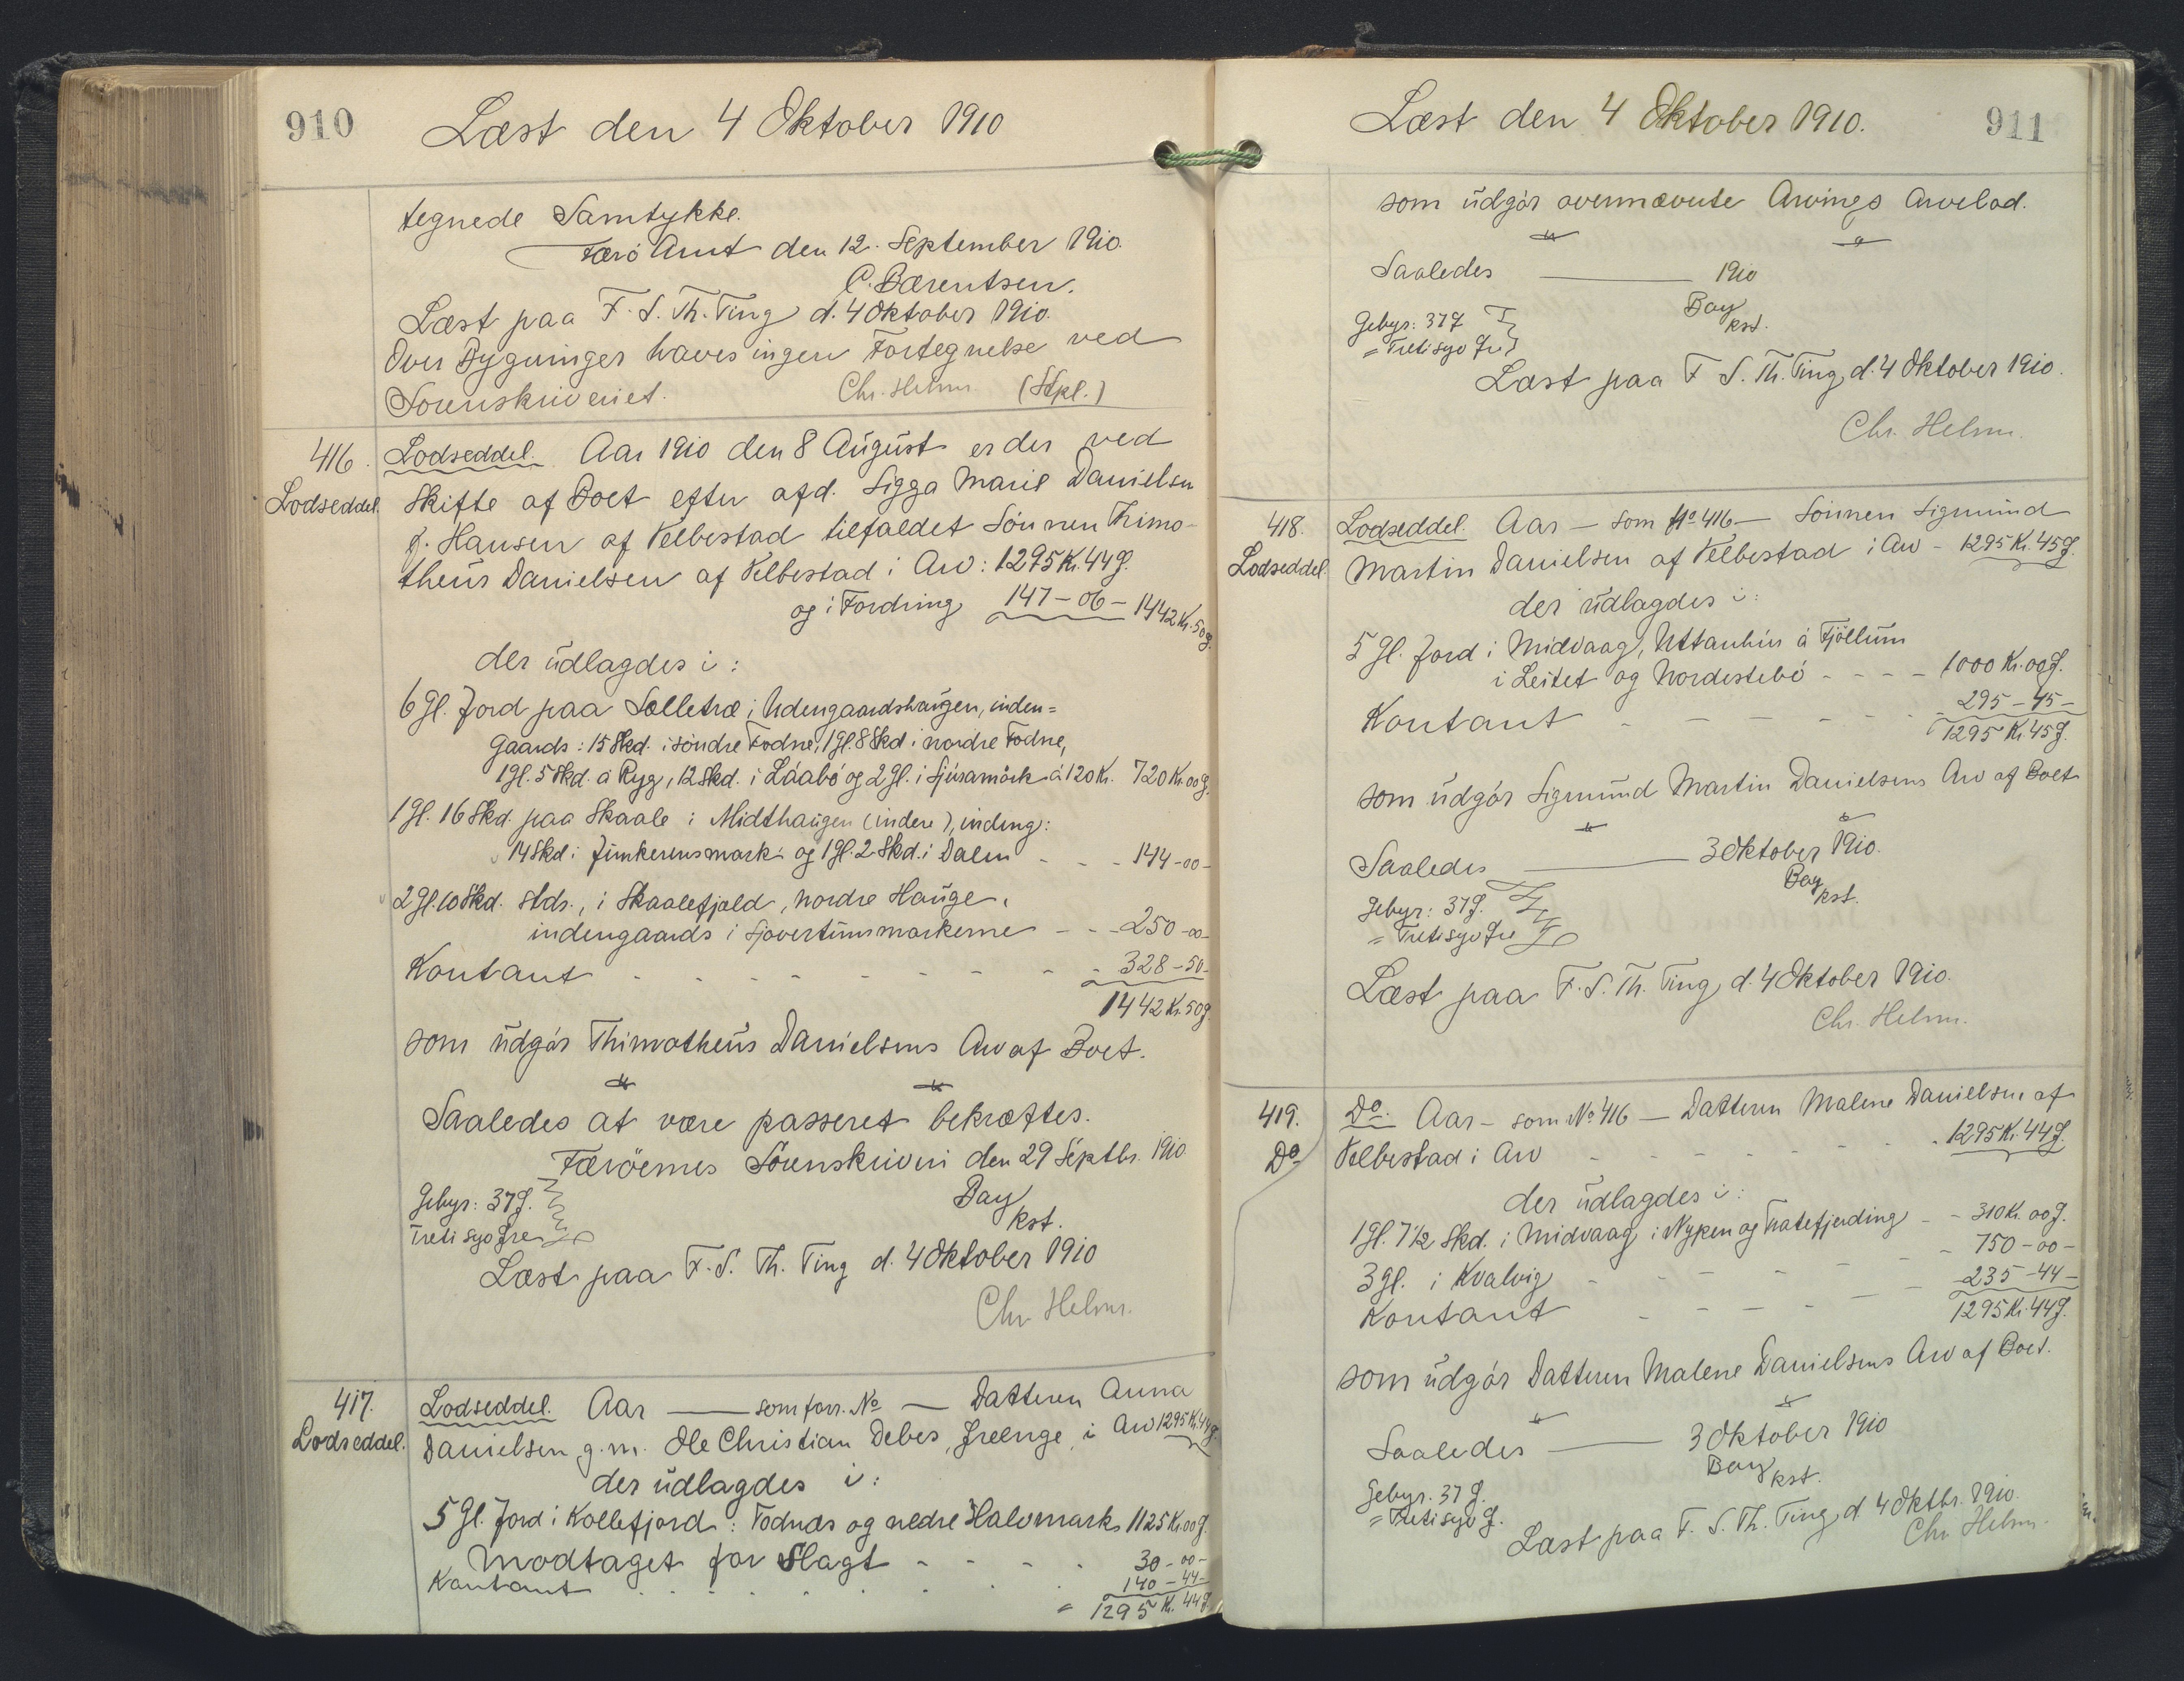 910
Læst den 4 Oktober 1910
tegnede Samtykke.
Færö Amt den 12. September 1910.
C. Bærentsen.
Læst paa F. S. Th. Ting d. 4 Oktober 1910.
Over Bygninger haves ingen Fortegnelse ved
Sorenskriveriet. Chr. Helms. (Stpl.)
416.
Lodseddel.
Lodseddel. Aar 1910 den 8 August er der ved
Skifte af Boet efter afd. Sigga Marie Danielsen
f. Hansen af Velbestad tilfaldet Sönnen Thimo-
theus Danielsen af Velbestad i Arv: 1295 Kr. 44 Ø.
og i Fordring 147-06- 1442 Kr. 50 Ø.
der udlagdes i:
6 Gl. Jord paa Sælletræ i Udengaardshaugen, inden=
gaards: 15 Skd. i söndre Todne, 1 Gl. 8 Skd i nordre Todne,
1 Gl. 5 Skd. á Ryg, 12 Skd. i Láabö og 2 Gl. i Sjúramörk á 120 Kr. 720 Kr. 00 Ø.
1 Gl. 16 Skd. paa Skaale i Midthaugen (indere), indeng:
14 Skd i Junkerensmark og 1 Gl. 2 Skd. i Dalen - - - 144-00-
2 Gl. 10 Skd. stds., i Skaalefjeld, nordre Hauge,
indengaards i Sjovertunsmarkerne - - - 250-00-
Kontant - - - - - - - 328-50-
1442 Kr. 50 Ø.
som udgör Thimotheus Danielsens Arv af Boet.
Saaledes at være passeret bekræftes.
Færöernes Sörenskriveri den 29 Septbr. 1910
Gebyr: 37 Ø. Bay
Tretisyv Øre kst.
Læst paa F. S. Th. Ting d. 4 Oktober 1910
Chr Helms.
417.
Lodseddel.
Lodseddel. Aar —— som forr. No — Datteren Anna
Danielsen g. m. Ole Christian Debes, Gjænge, i Arv 1295 Kr. 44 Ø.
der udlagdes i:
5 Gl. Jord i Kollefjord: Todnæs og nedre Halvmark 1125 Kr. 00 Ø.
Modtaget for Slagt - - - - 30-00-
Kontant - - - - - - 140-44-
= 1295 Kr. 44 Ø.
Læst den 4 Oktober 1910.
911
som udgör ovennævnte Arvings Arvelod.
Saaledes —— 1910
Bay
kst.
Gebyr: 37 Ø
= Tretisyv Øre
Læst paa F S. Th. Ting d. 4 Oktober 1910.
Chr. Helms.
418.
Lodseddel
Lodseddel. Aar — som No 416 — Sönnen Sigmund
Martin Danielsen af Velbestad i Arv - 1295 Kr. 45 Ø.
der udlagdes i:
5 Gl. Jord i Midvaag, Uttanhús á Fjöllum
i Leitet og Nordestebö - - - - 1000 Kr. 00 Ø.
Kontant - - - - - - - 295-45-
1295 Kr. 45 Ø.
som udgör Sigmund Martin Danielsens Arv af Boet
Saaledes —— 3 Oktober 1910.
Bay
kst.
Gebyr: 37 Ø.
= Tretisyv Øre
Læst paa F. S. Th. Ting d. 4 Oktober 1910.
Chr. Helms.
419.
Do
Do. Aar - som No 416 — Datteren Malene Danielsen af
Velbestad i Arv - - - - - - 1295 Kr. 44 Ø.
der udlagdes i:
1 Gl. 7 1/2 Skd. i Midvaag i Nyken og Tratefjerding - - 310 Kr. 00 Ø.
3 Gl. i Kvalvig - - - - - - 750-00-
Kontant - - - - - - 235-44-
1295 Kr. 44 Ø.
som udgör Datteren Malene Danielsens Arv af Boet.
Saaledes —— 3 Oktober 1910
Bay
kst.
Gebyr. 37 Ø.
= Tretisyv Ø.
Læst paa F. S. Th. Ting d 4 Oktbr. 1910.
Chr Helms.